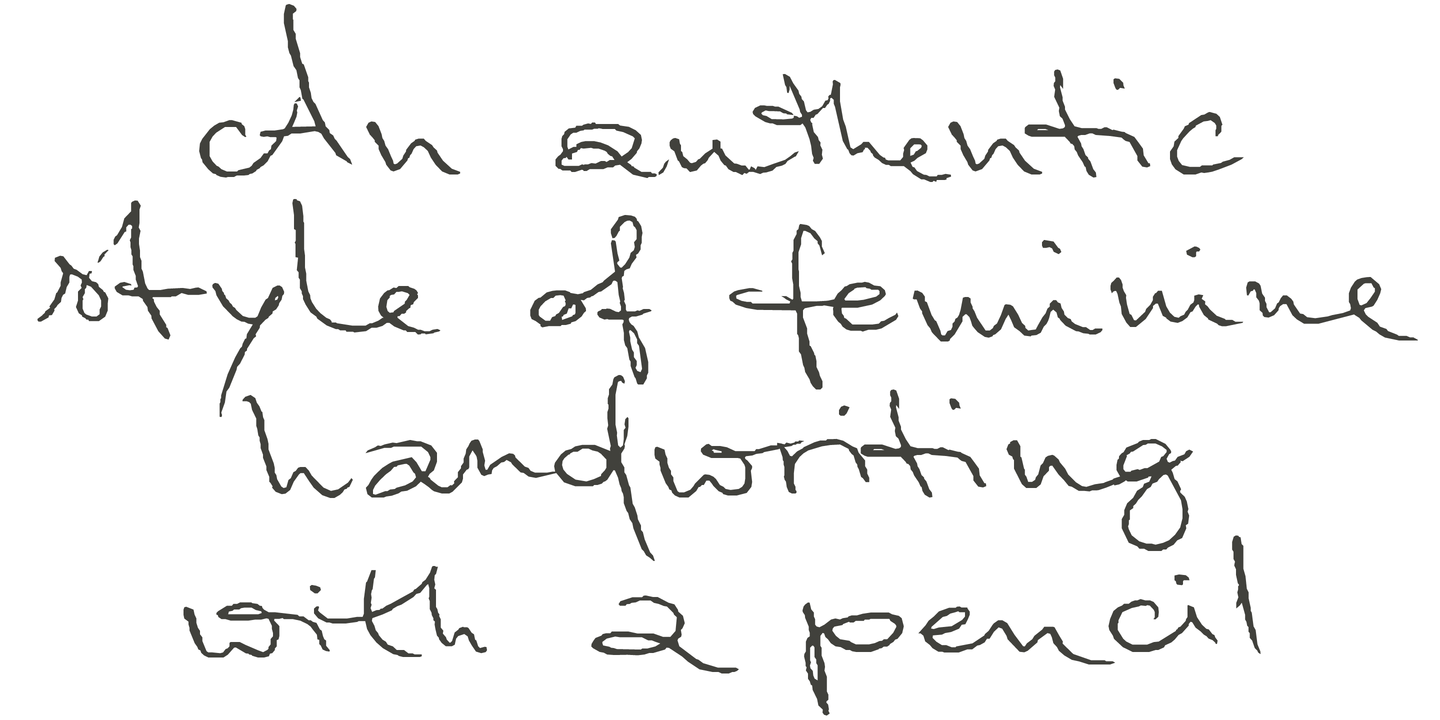 An authentic
style of feminine
handwriting
with a pencil